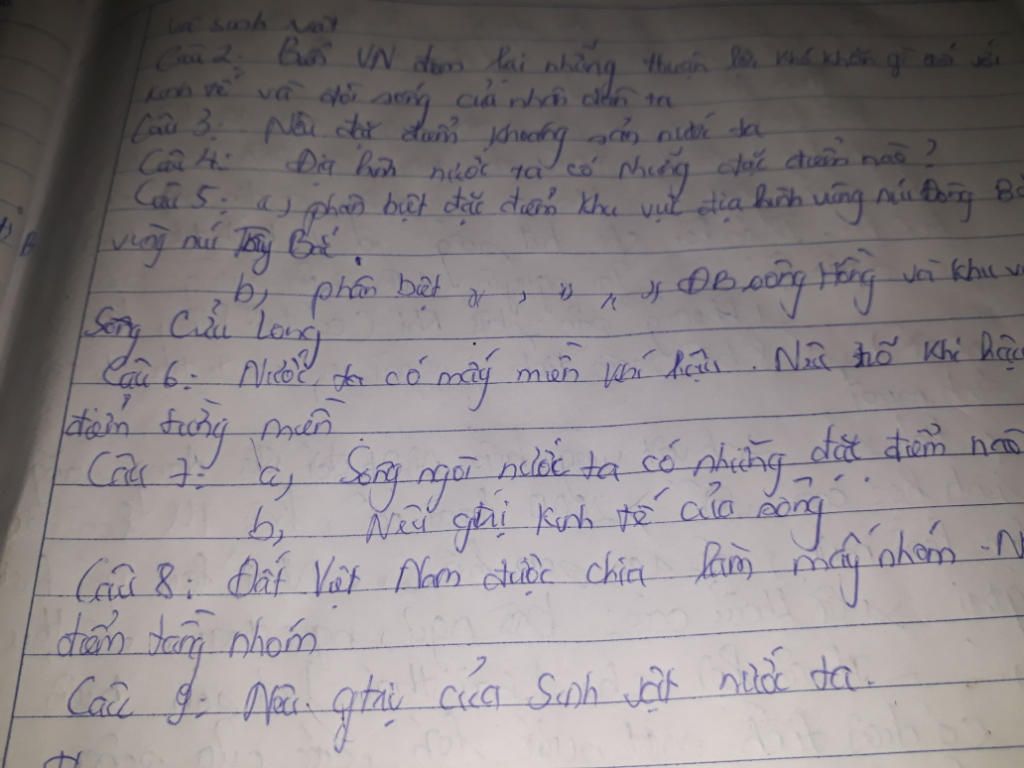 và sinh vật
Câu 2: Biển VN đem lại những thuận lợi, khó khăn gì đối với
kinh tế và đời sống của nhân dân ta
Câu 3: Nêu đặc điểm khoáng sản nước ta
Câu 4: Địa hình nước ta có những đặc điểm nào?
Câu 5: a, phân biệt đặc điểm khu vực địa hình vùng núi Đông Bắ
vùng núi Tây Bắc.
b, phân biệt " , " " " ĐB sông Hồng và khu v
Sông Cửu Long
Câu 6: Nước ta có mấy miền khí hậu. Nêu khí hậu
điểm từng miền
Câu 7: a, Sông ngòi nước ta có những đặc điểm nào
b, Nêu giá trị kinh tế của sông
Câu 8: Đất Việt Nam được chia làm mấy nhóm. N
điểm từng nhóm
Câu 9: Nêu giá trị của Sinh vật nước ta.